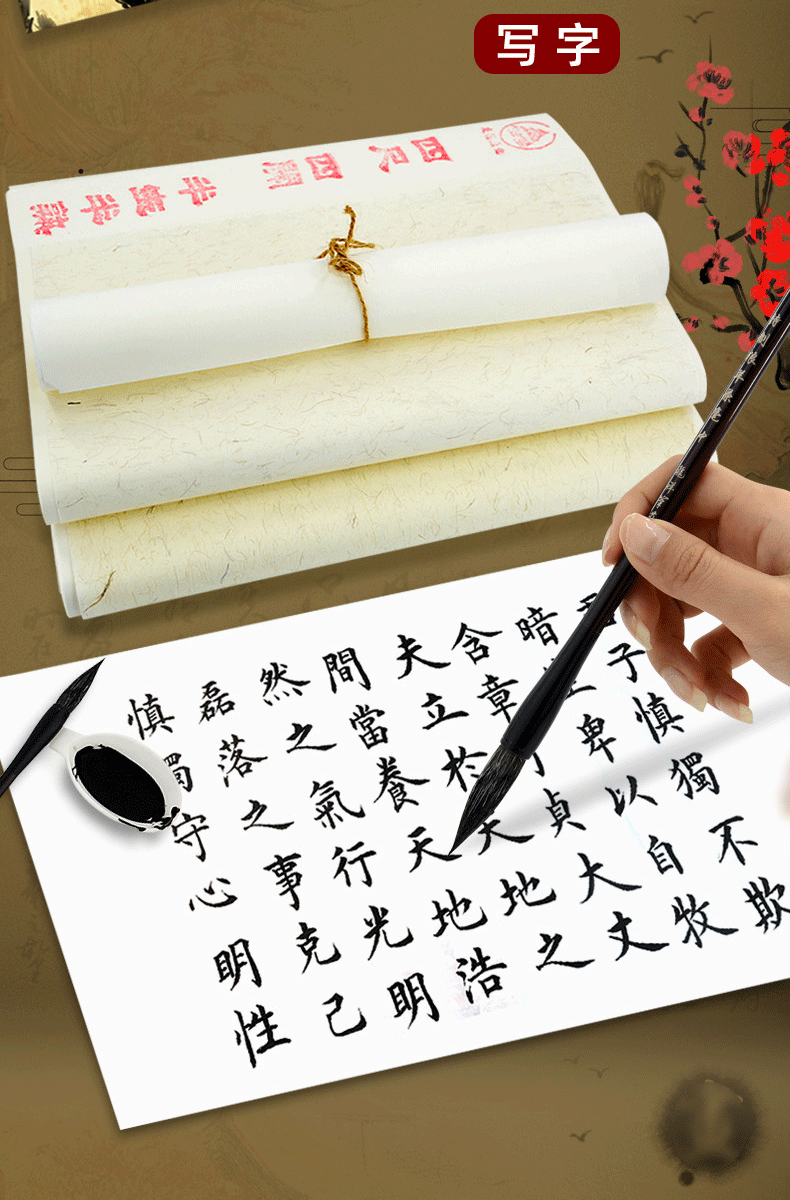 写字
四尺四開
君子慎獨不欺
暗卑以自牧
含章貞大文
夫立於天地之
間當養天地浩
然之氣行光明
磊落之事克己
慎獨守心明性